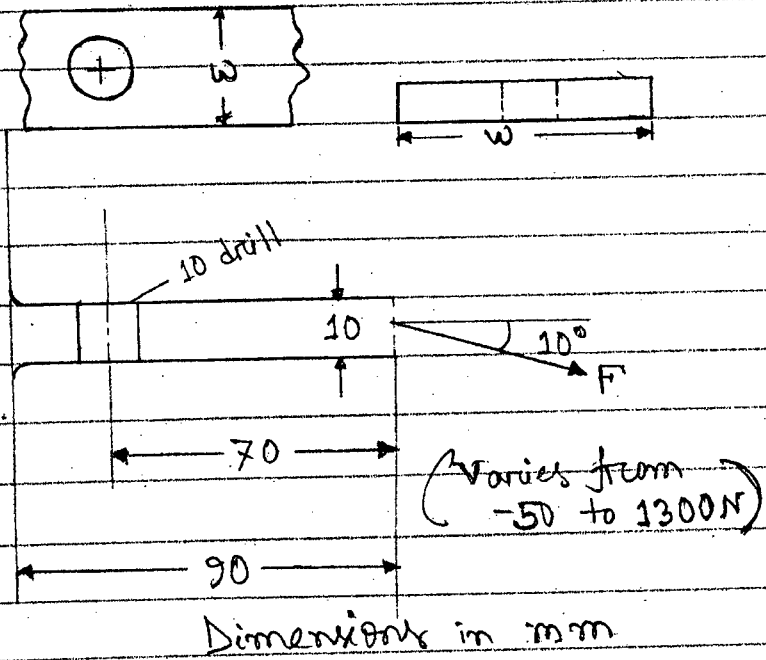 w
w
10 drill
10
10°
F
70
(Varies from
-50 to 1300N)
90
Dimensions in mm